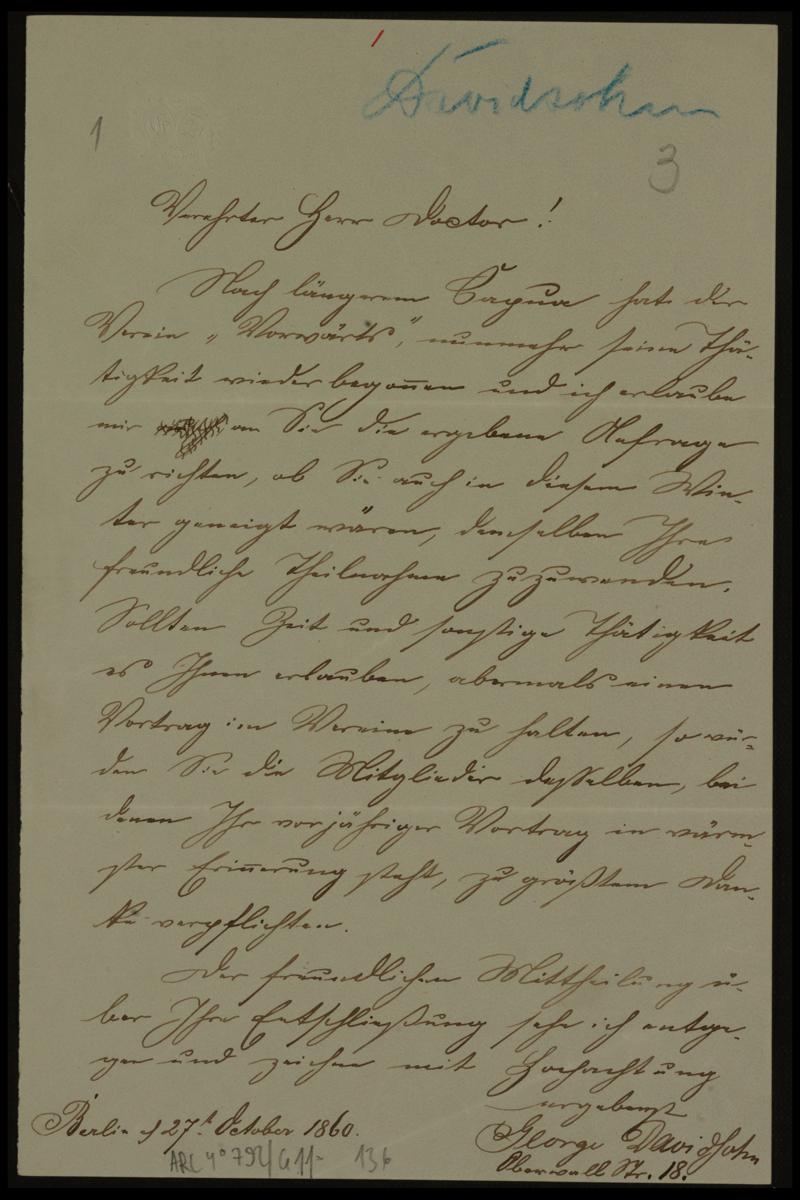 Davidsohn
1
3
Verehrter Herr Doctor!
Nach längerem Capua hat der
Verein „Vorwärts", nunmehr seine Thä-
tigkeit wieder begoñen und ich erlaube
mir an Sie die ergebene Anfrage
zu richten, ob Sie auch in diesem Win-
ter geneigt wären, demselben Ihre
freundliche Theilnahme zuzuwenden.
Sollten Zeit und sonstige Thätigkeit
es Ihnen erlauben, abermals einen
Vortrag im Vereine zu halten, so wür-
den Sie die Mitglieder desselben, bei
denen Ihr vorjähriger Vortrag in wärm-
ster Eriñerung steht, zu größtem Dan-
ke verpflichten.
Der freundlichen Mittheilung ü-
ber Ihre Entschließung sehe ich entge-
gen und zeichne mit Hochachtung
ergebenst
George Davidsohn
Oberwall Str. 18.
Berlin d 27t October 1860.
ARC 4° 792/G11- 136